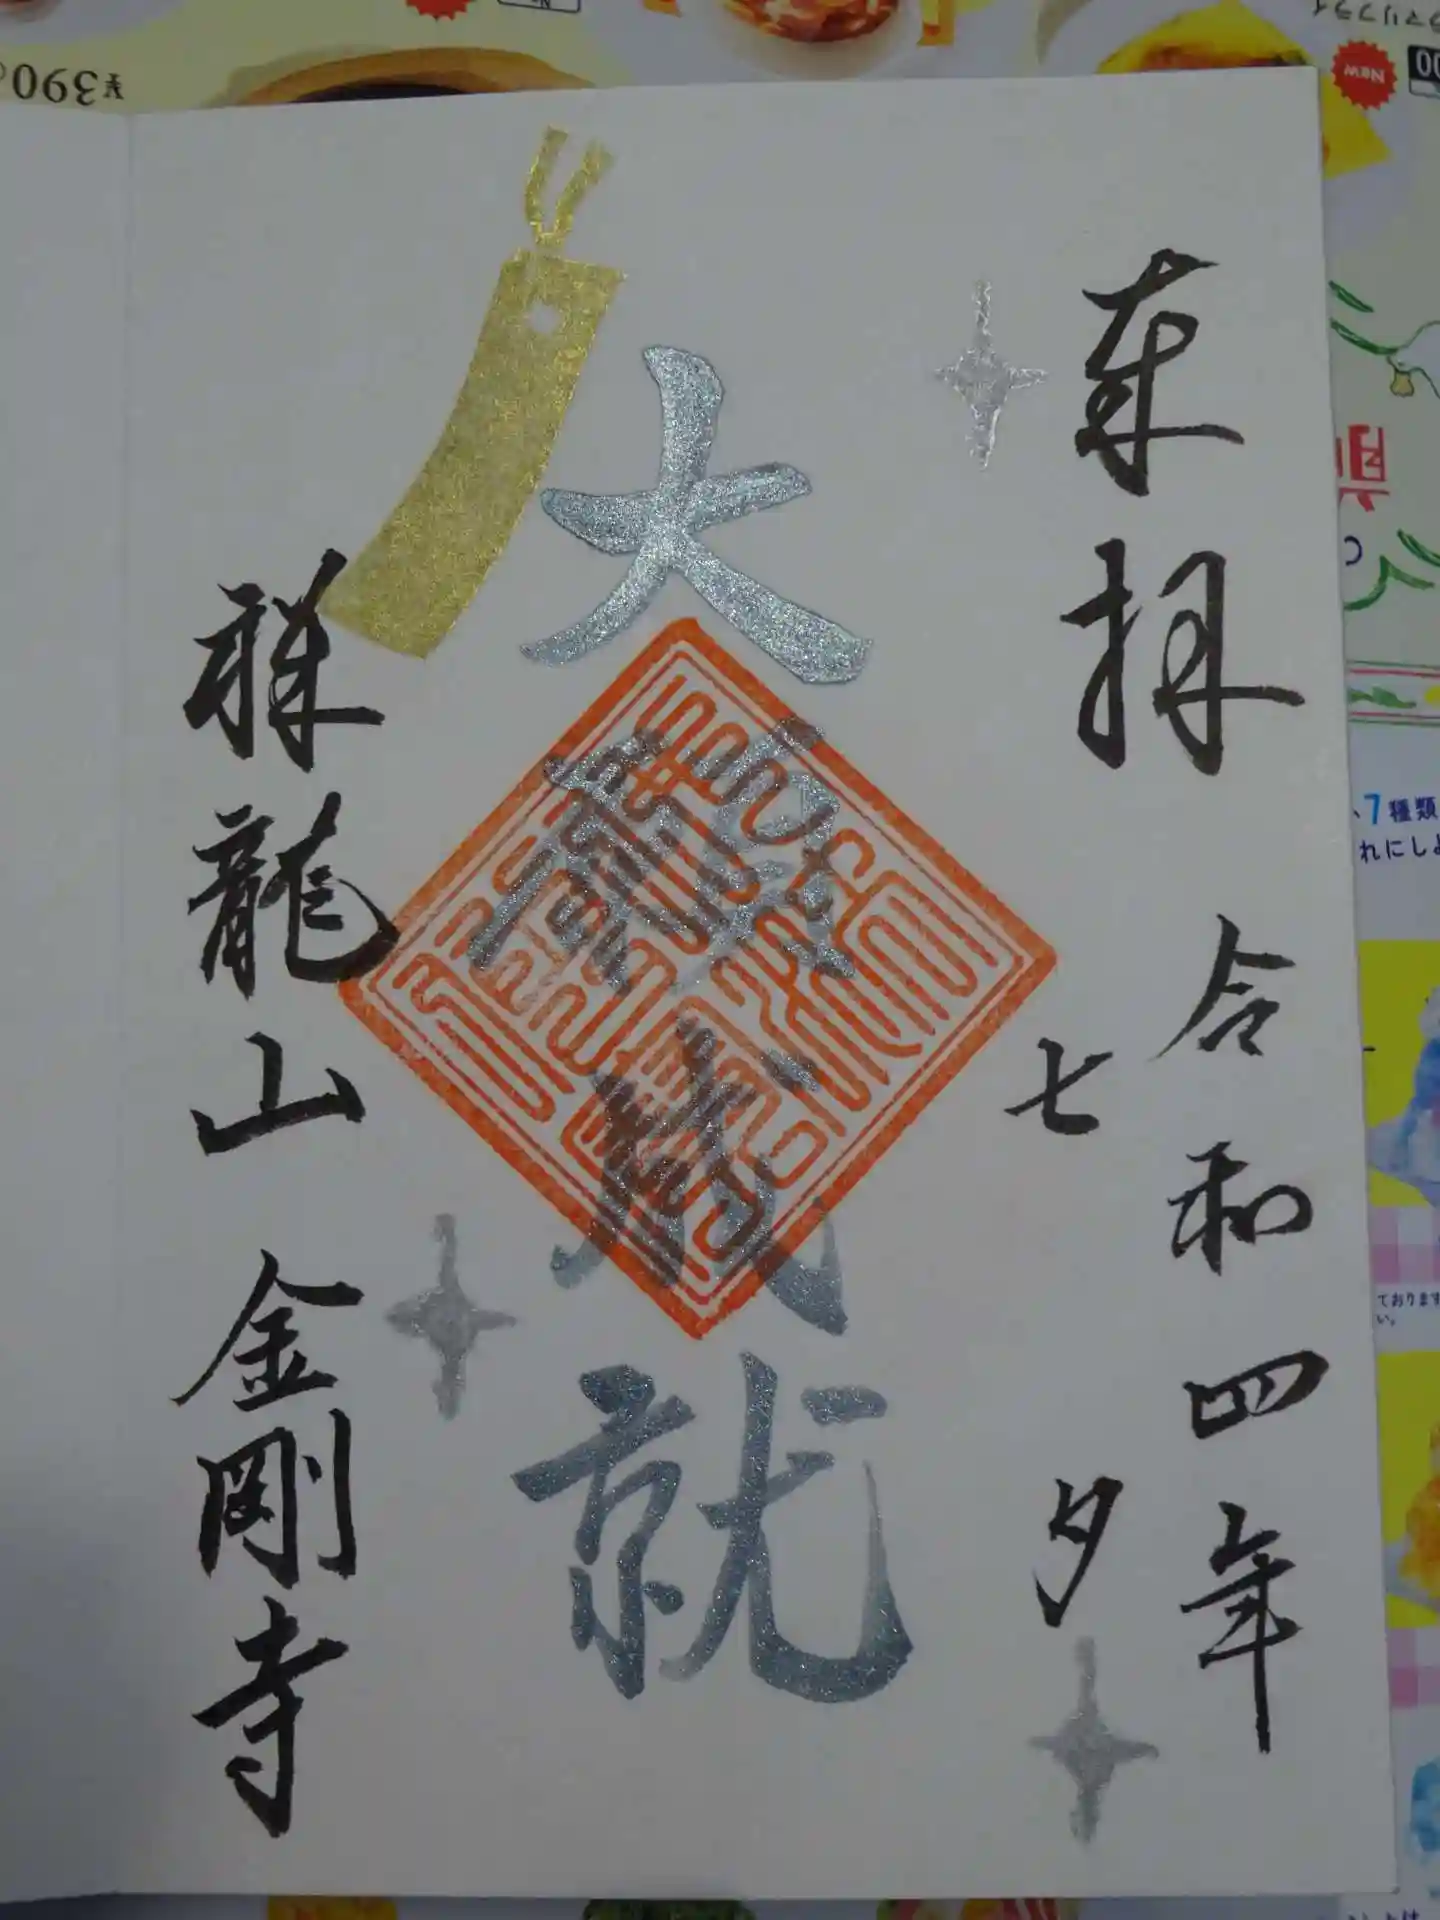 奉拝
令和四年
七夕
大願成就
祥龍山 金剛寺
¥390
マリフライ
New
、7種類
れにしよ
ております
い。